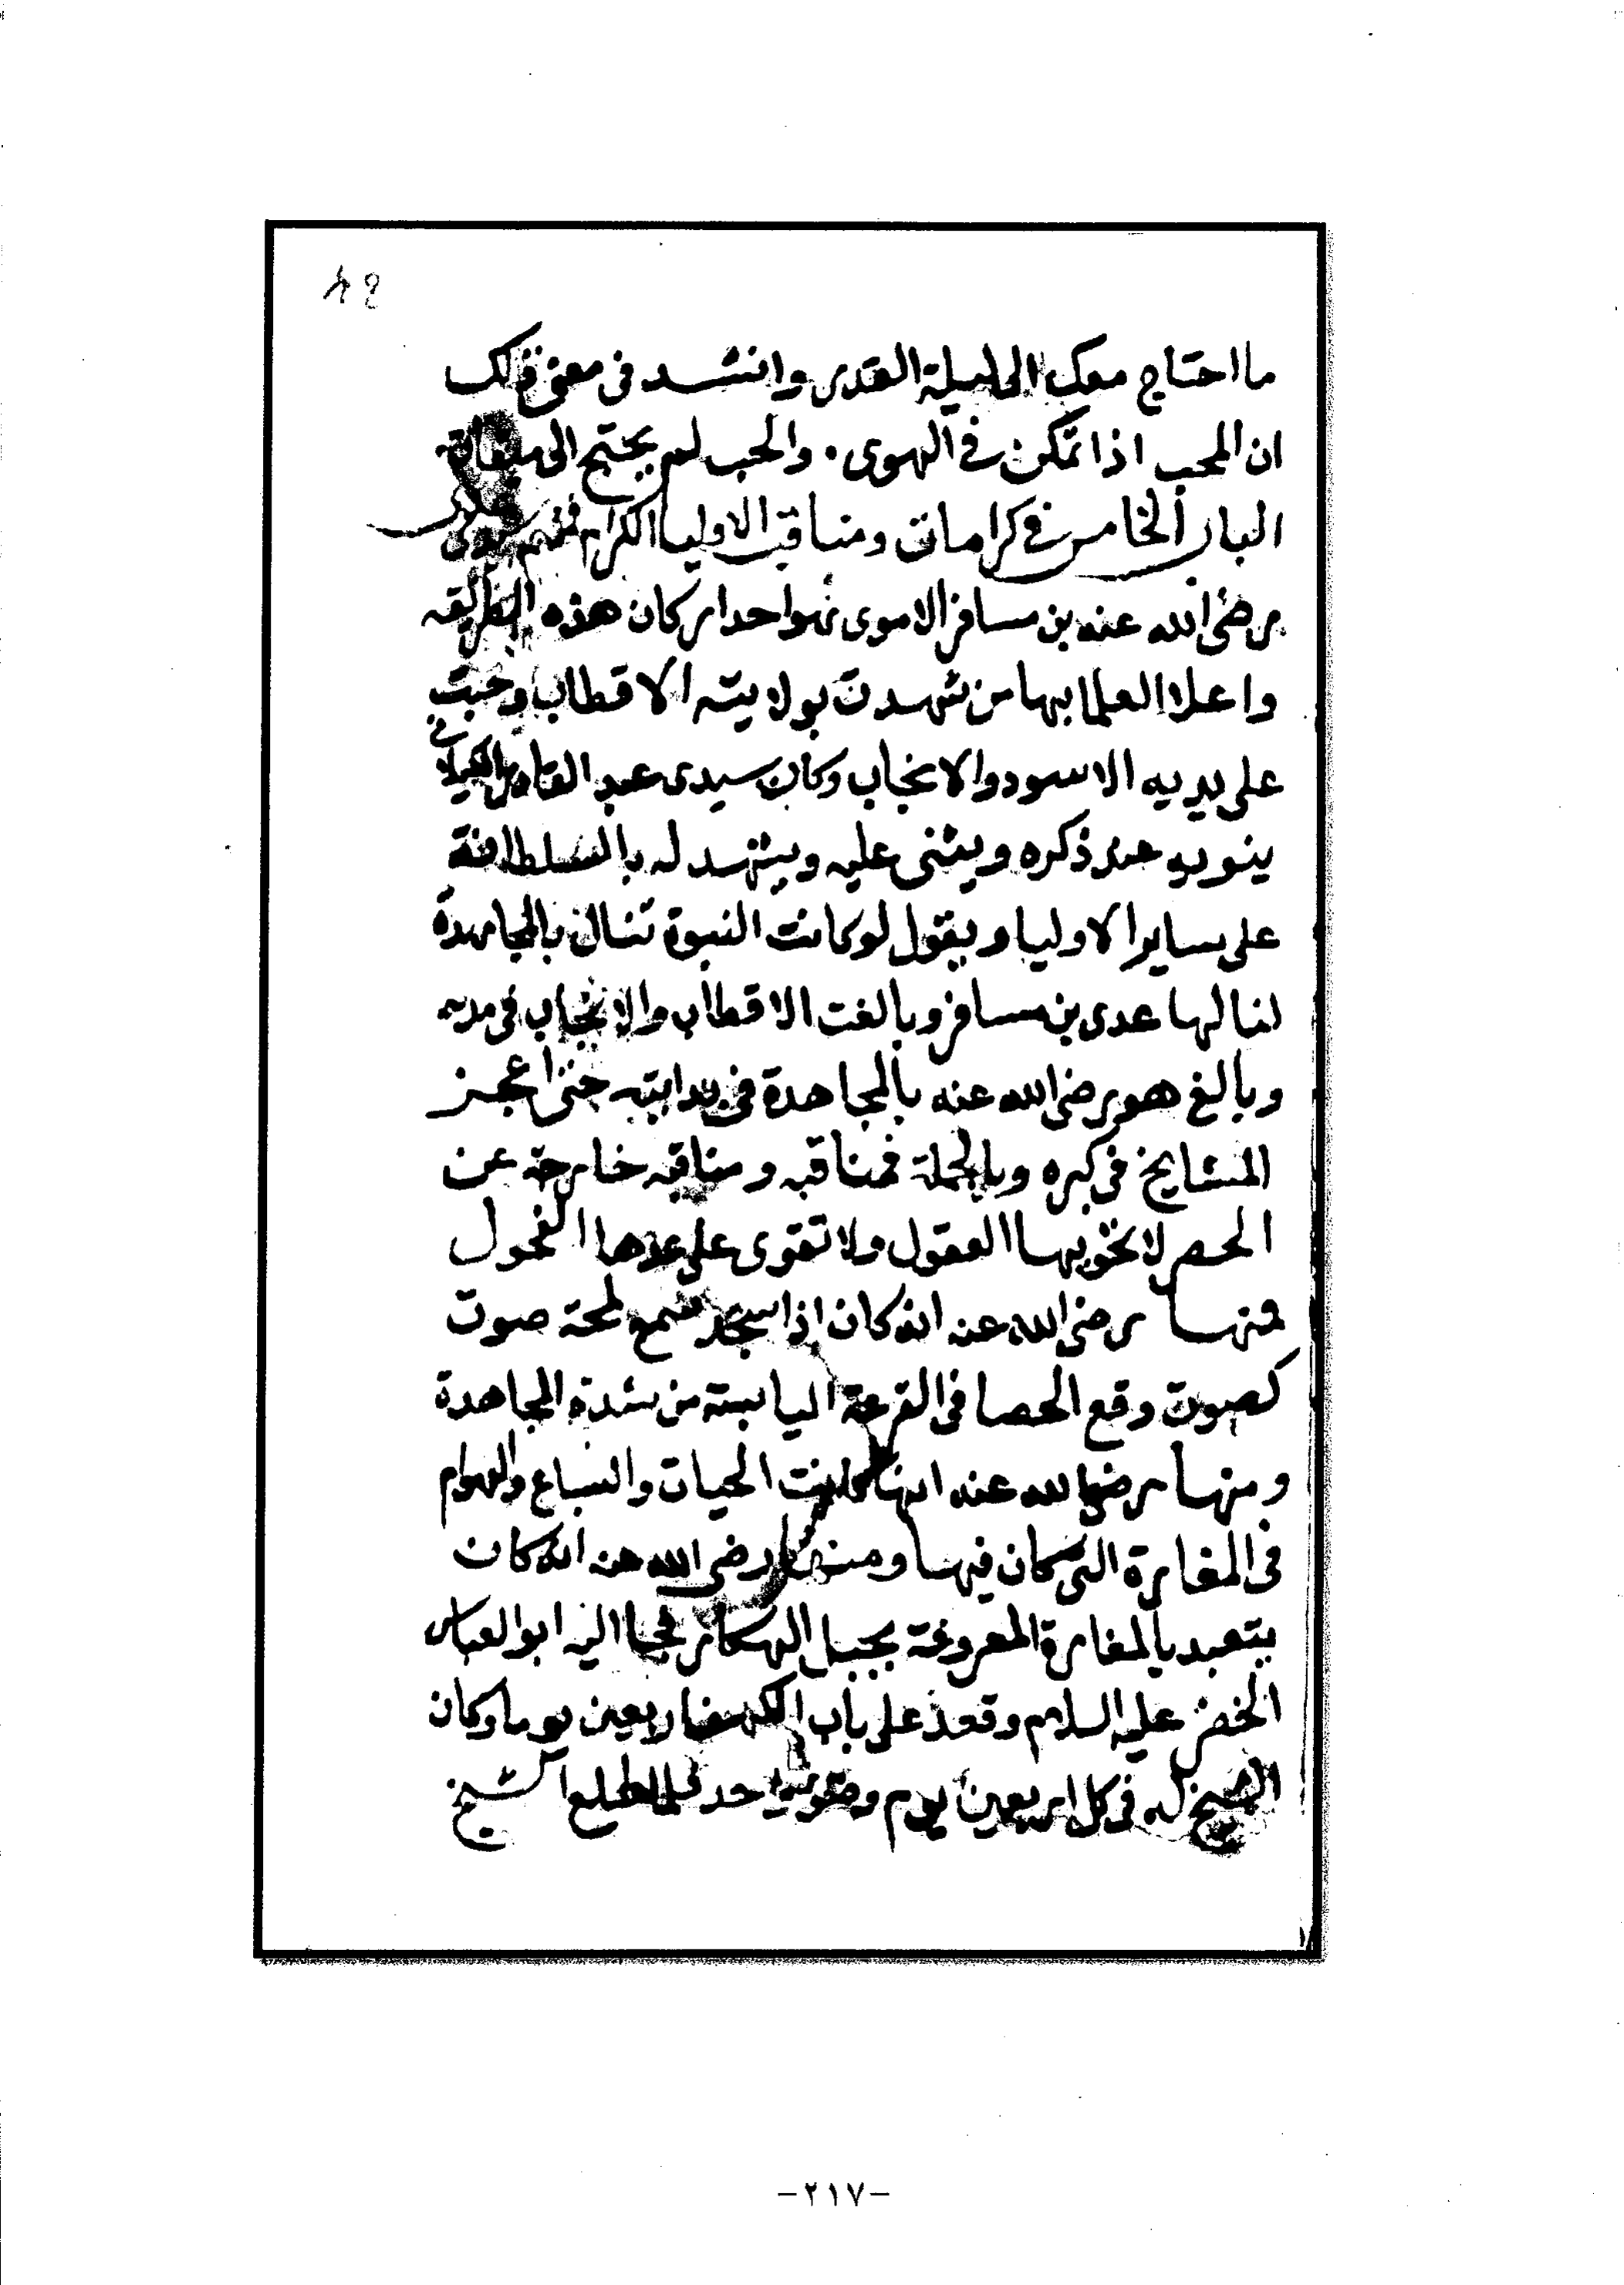 ما احتاج معك الى ليلة القدر وانشد فى معنى ذلك
ان المحب اذا تمكن فى الهوى . والحب لم يحتج الى
الباب الخامس فى كرامات ومناقب الاوليا الكرام فمنهم
رضى الله عنه بن مسافر الاموى فهو احد اركان هذه الطريقه
واعلا العلما بها من شهدت بولايته الاقطاب
على يديه الاسود والانجاب وكان سيدى عبد القادر الكيلانى
ينوبه ذكره ويثنى عليه ويشهد له بالسلطانة
على ساير الاوليا ويقول لو كانت النبوة تنال بالمجاهدة
لنالها عدى بن مسافر وبالغت الاقطاب والانجاب فى
وبالغ هو رضى الله عنه بالمجاهدة فى بدايته حتى اعجز
المشايخ فى كبره وبالجملة فمناقبه ومناقبه خارجة عن
الحصر لا العقول ولا تقوى على عدها الفحول
فمنها رضى الله عنه انه كان اذا سجد سمع لمخه صوت
كصوت وقع الحصا فى القرعة اليابسة من شدة المجاهدة
ومنها رضى الله عنه انها كانت الحيات والسباع والهوام
فى المغارة التى كان فيها ومنها رضى الله عنه انه كان
يتعبد بالمغارة المعروفة بجبل الهكار فجا اليه ابو العباس
الخضر عليه السلام وقعد على باب الكهف اربعين يوما وكان
الشيخ له فى كل اربعين يوم واحد فلما طلع الشيخ
-٢١٧-